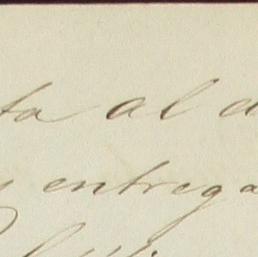 ta al d
y entrega